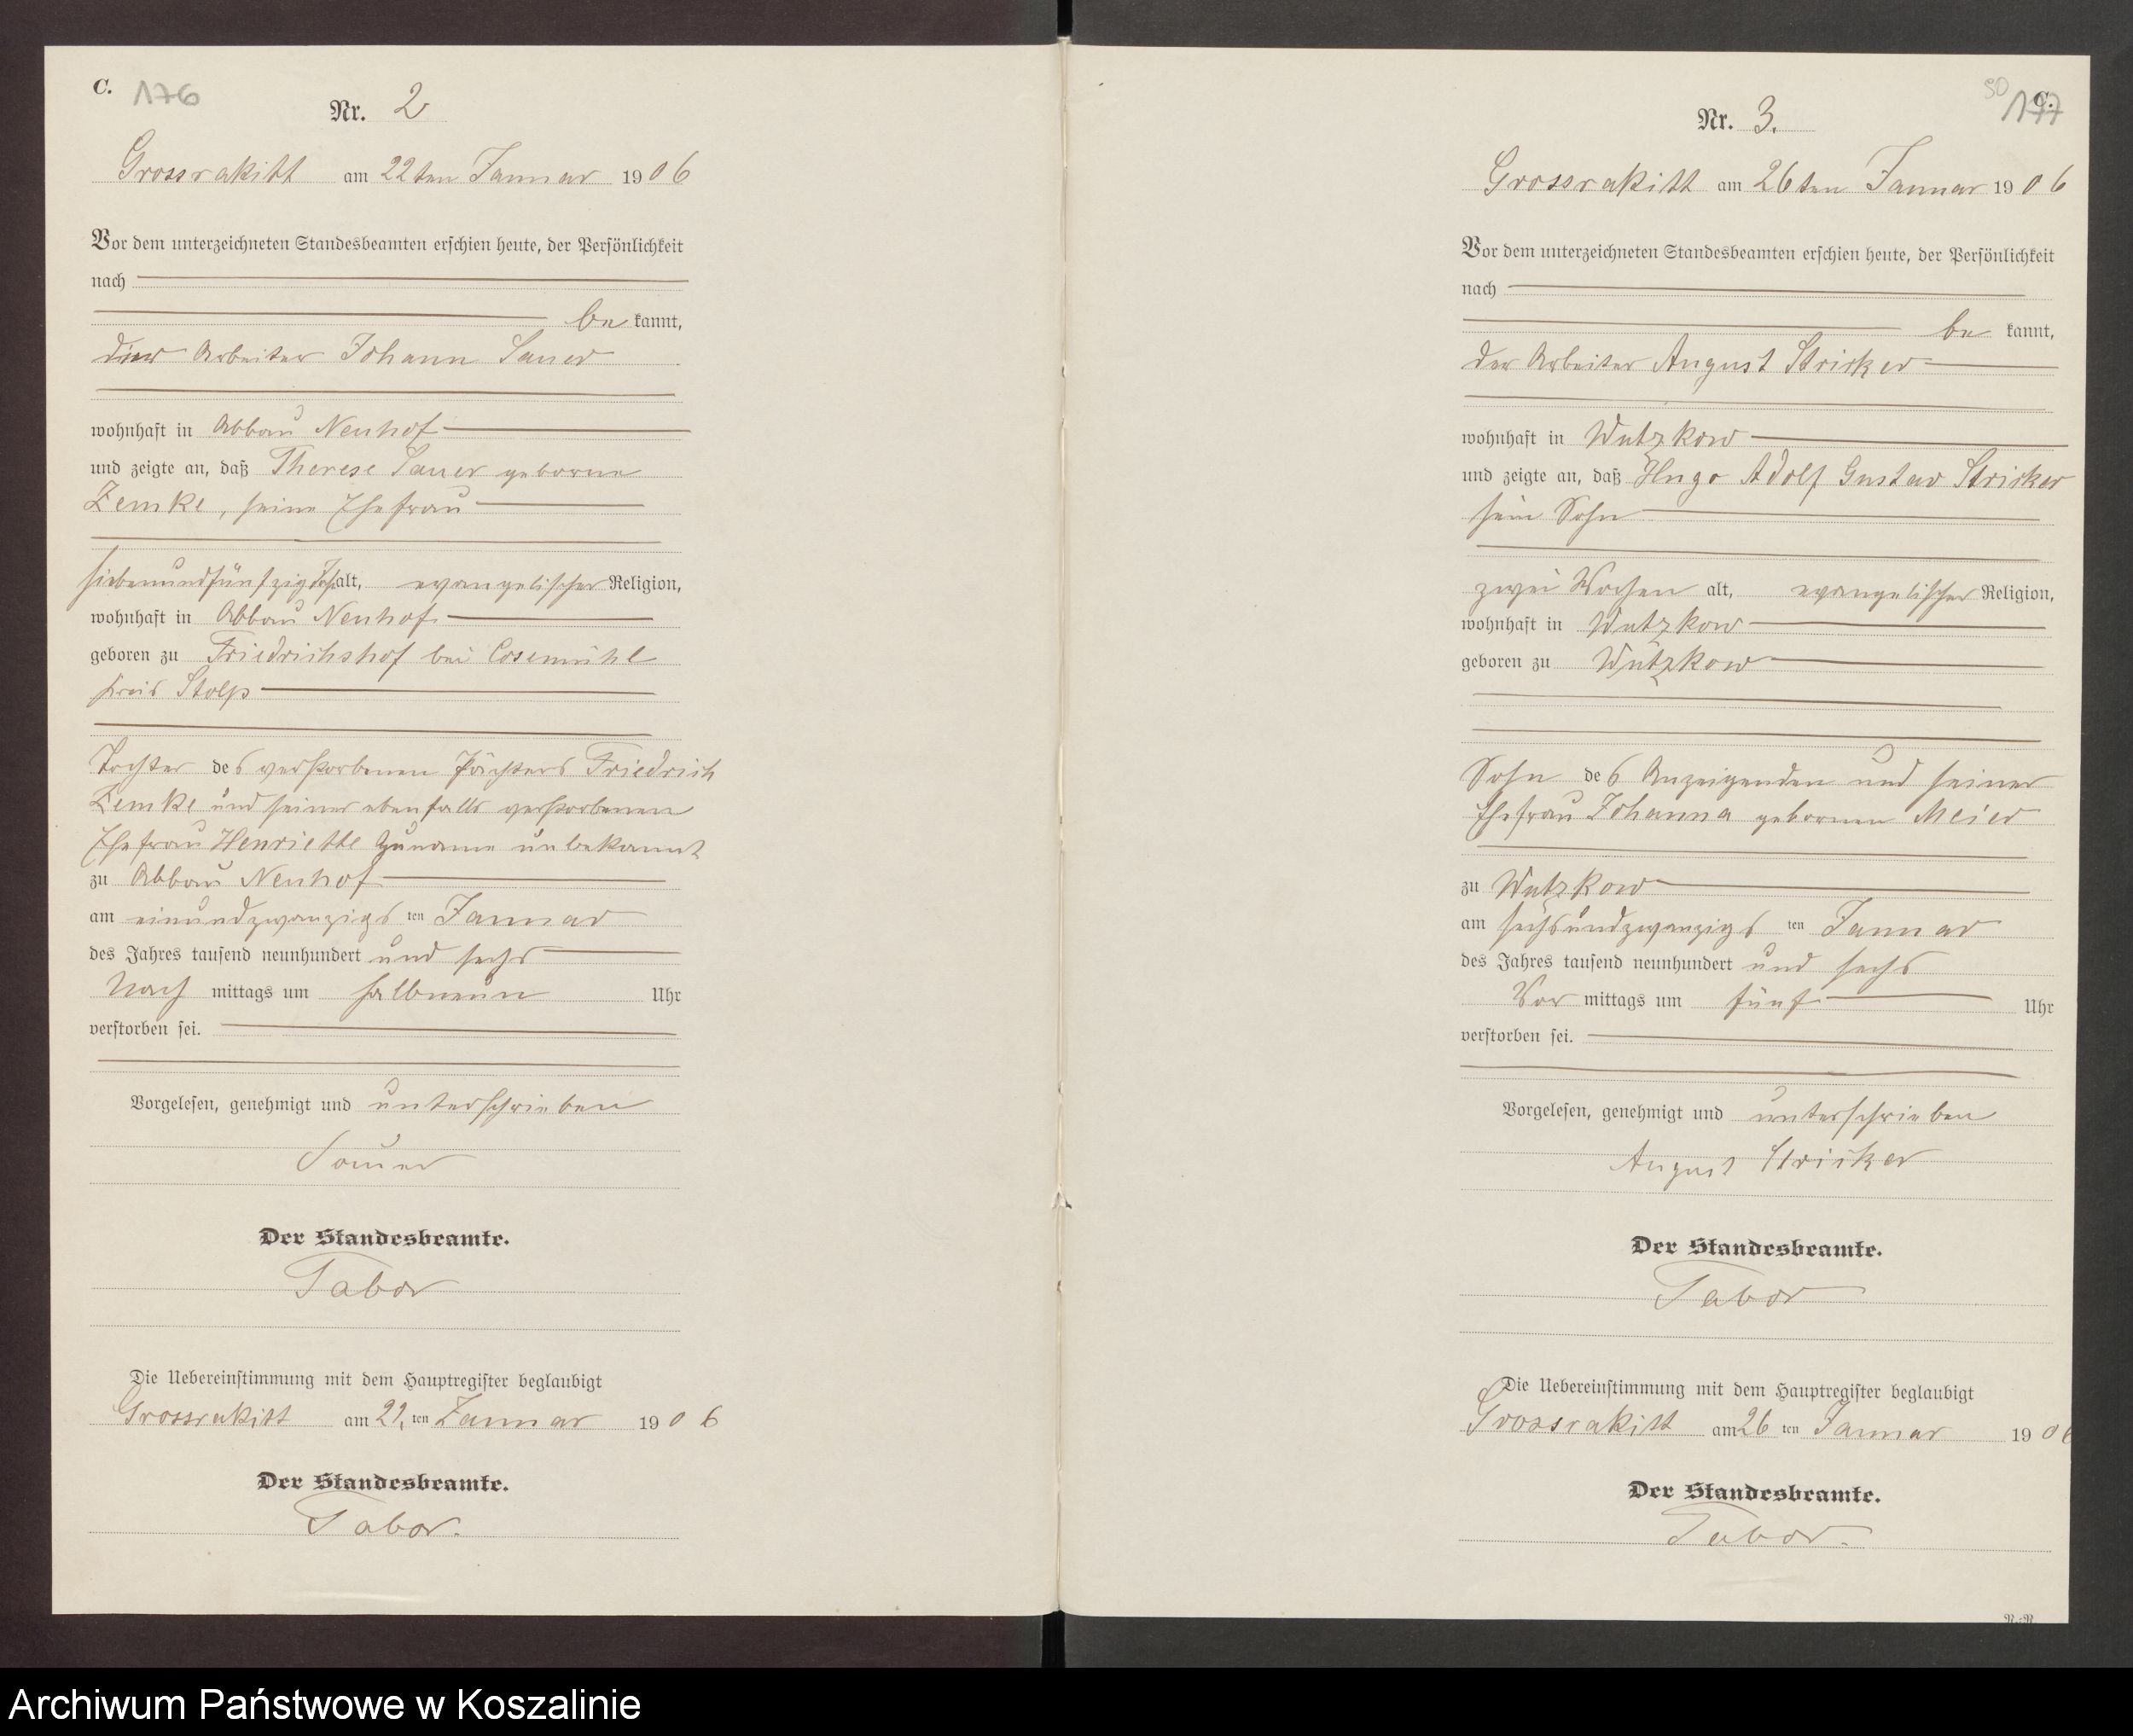 C. 176
Nr. 2
Grossrakitt am 22ten Januar 1906
Vor dem unterzeichneten Standesbeamten erschien heute, der Persönlichkeit
nach
be kannt,
Arbeiter Johann Sauer
wohnhaft in Abbau Neuhof
und zeigte an, daß Therese Sauer geborne
Zemke, seine Ehefrau
siebenundfünfzig Jahr alt, evangelischer Religion,
wohnhaft in Abbau Neuhof
geboren zu Friedrichshof bei Cosemühl
Kreis Stolp
Tochter des verstorbenen Pächters Friedrich
Zemke und seiner ebenfalls verstorbenen
Ehefrau Henriette Zuname unbekannt
zu Abbau Neuhof
am einundzwanzigs ten Januar
des Jahres tausend neunhundert und sechs
Nach mittags um halbneun Uhr
verstorben sei.
Vorgelesen, genehmigt und unterschrieben
Sauer
Der Standesbeamte.
Tabor
Die Uebereinstimmung mit dem Hauptregister beglaubigt
Grossrakitt am 22. ten Januar 1906
Der Standesbeamte.
Tabor.
90
177 C.
Nr. 3.
Grossrakitt am 26ten Januar 1906
Vor dem unterzeichneten Standesbeamten erschien heute, der Persönlichkeit
nach
be kannt,
der Arbeiter August Stricker
wohnhaft in Wutzkow
und zeigte an, daß Hugo Adolf Gustav Stricker
sein Sohn
zwei Wochen alt, evangelischer Religion,
wohnhaft in Wutzkow
geboren zu Wutzkow
Sohn des Anzeigenden und seiner
Ehefrau Johanna gebornen Meier
zu Wutzkow
am sechsundzwanzigs ten Januar
des Jahres tausend neunhundert und sechs
Vor mittags um fünf Uhr
verstorben sei.
Vorgelesen, genehmigt und unterschrieben
August Stricker
Der Standesbeamte.
Tabor
Die Uebereinstimmung mit dem Hauptregister beglaubigt
Grossrakitt am 26 ten Januar 1906
Der Standesbeamte.
Tabor.
Archiwum Państwowe w Koszalinie